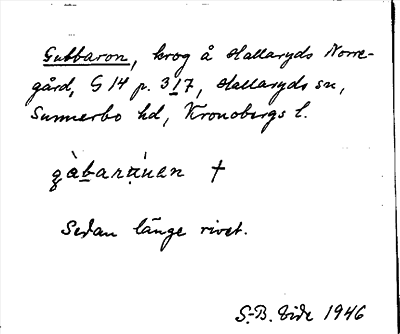 Gubbaron, krog å Hallaryds Norre-
gård, G 14 p. 317, Hallaryds sn,
Sunnerbo hd, Kronobergs l.
gàbaránen †
Sedan länge rivet.
S.-B. Vide 1946